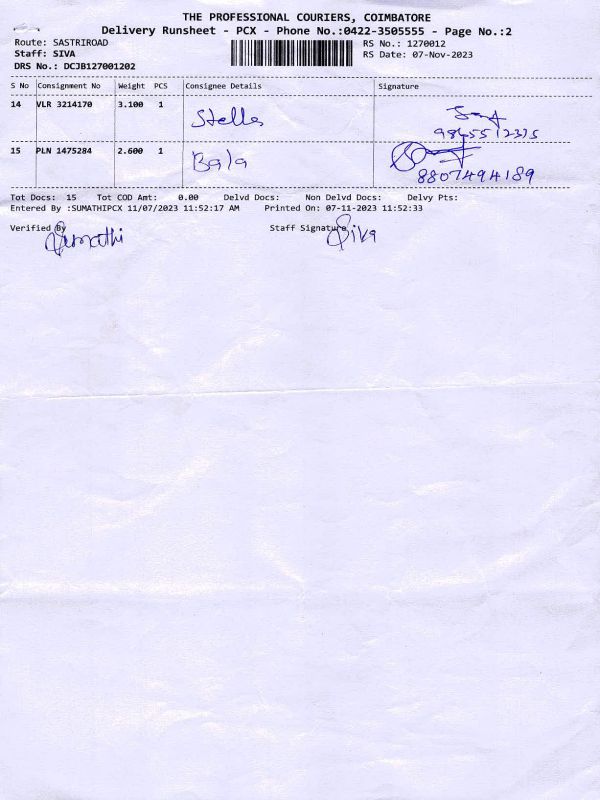 THE PROFESSIONAL COURIERS, COIMBATORE
Delivery Runsheet - PCX - Phone No.:0422-3505555 - Page No.:2
Route: SASTRIROAD RS No.: 1270012
Staff: SIVA RS Date: 07-Nov-2023
DRS No.: DCJB127001202
S No Consignment No Weight PCS Consignee Details Signature
14 VLR 3214170 3.100 1 Stella
15 PLN 1475284 2.600 1 Bala
8807494189
Tot Docs: 15 Tot COD Amt: 0.00 Delvd Docs: Non Delvd Docs: Delvy Pts:
Entered By :SUMATHIPCX 11/07/2023 11:52:17 AM Printed On: 07-11-2023 11:52:33
Verified By Sumathi Staff Signature Siva